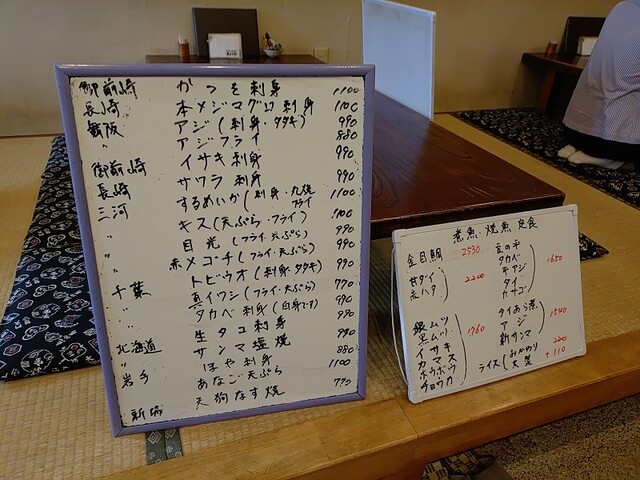 御前崎 かつを刺身 1100
長崎 本メジマグロ刺身 1100
飯阪 アジ(刺身・タタキ) 990
〃 アジフライ 880
イサキ刺身 990
御前崎 サワラ刺身 990
長崎 するめいか(刺身・丸焼 フライ 1100
三河 キス(天ぷら・フライ) 1100
〃 目光(フライ・天ぷら) 990
〃 赤メゴチ(フライ・天ぷら) 990
〃 トビウオ(刺身・タタキ) 990
千葉 真イワシ(フライ・天ぷら) 770
〃 タカベ刺身(白身です) 990
生タコ刺身 990
北海道 サンマ塩焼 990
〃 ほや刺身 880
岩手 あなご天ぷら 1100
〃 天狗なす焼 770
新城
煮魚・焼魚定食
金目鯛 2530
甘ダイ
赤ハタ 2200
銀ムツ
黒ムツ 1760
イサキ
カマス
ホウボウ
チカメ
タカベ
キアジ
タイ
カサゴ 1650
タイあら煮
アジ 1540
新サンマ
ライス(おかわり 220
大盛 +110